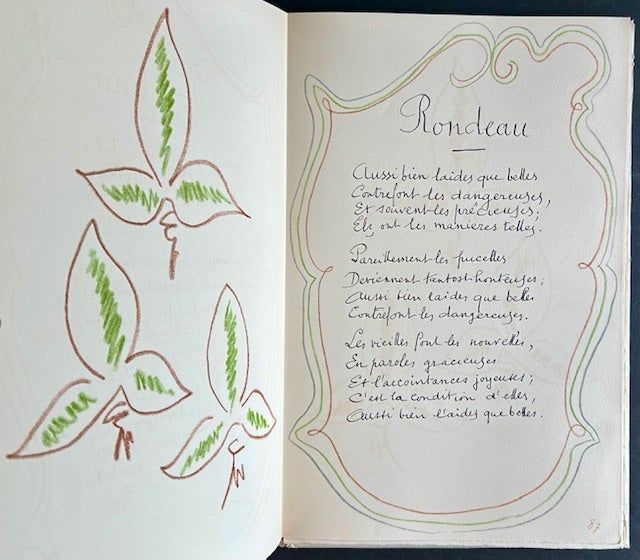 Rondeau
Aussi bien laides que belles
Contrefont les dangereuses,
Et souvent les précieuses ;
Els ont les manieres telles.
Pareillement les pucelles
Deviennent tantost honteuses ;
Aussi bien laides que belles
Contrefont les dangereuses.
Les vieilles font les nouvelles,
En paroles gracieuses
Et l'accointances joyeuses ;
C'est la condition d'elles,
Aussi bien l'aides que belles.
87